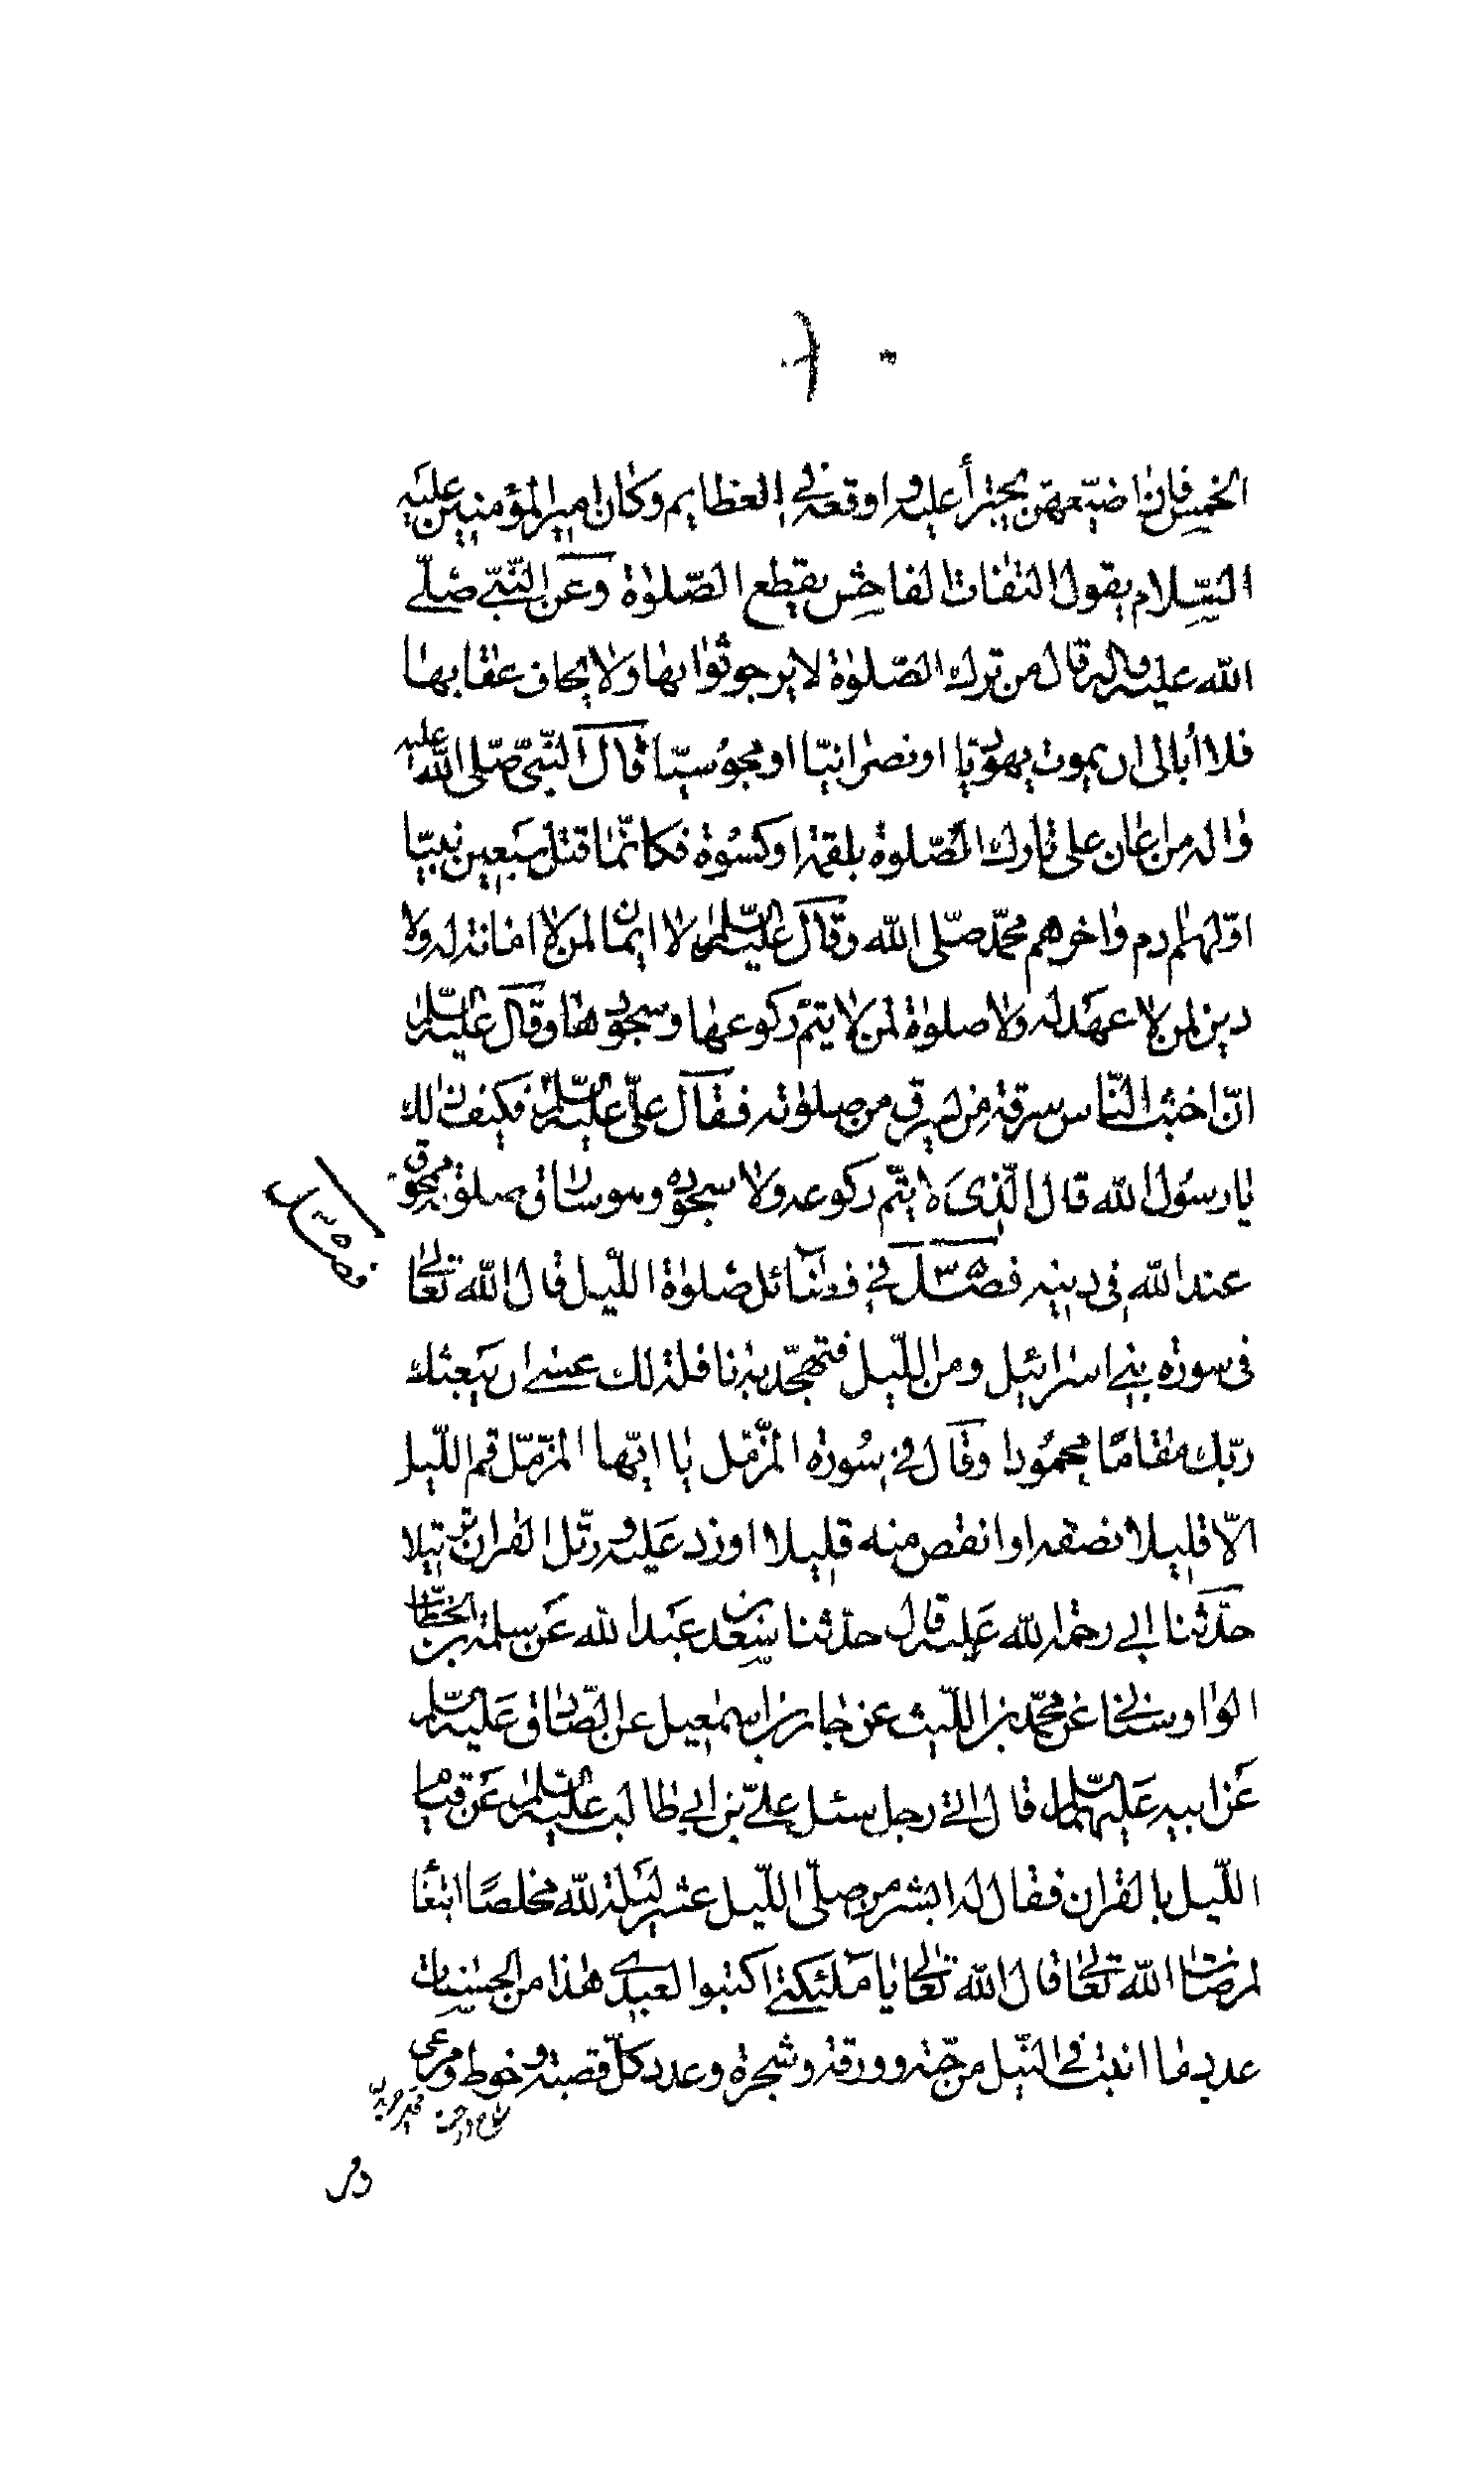 الخمس فان ضيّعهنّ يجترأ عليه و اوقعه في العظايم وكان امير المؤمنين عليه
السّلام يقول التفات الفاحش يقطع الصّلوة وعن النّبيّ صلّى
الله عليه واله قال من ترك الصّلوة لا يرجو ثوابها ولا يخاف عقابها
فلا أبالى ان يموت يهوديّا او نصرانيّا او مجوسيّا قال النّبيّ صلّى الله عليه
واله من اعان على تارك الصّلوة بلقمة او كسوة فكانّما قتل سبعين نبيّا
اوّلهم ادم واخرهم محمّد صلّى الله وقال عليه السّلم لا ايمان لمن لا امانة له ولا
دين لمن لا عهد له ولا صلوة لمن لا يتمّ ركوعها وسجودها وقال عليه السّلم
انّ اخبث النّاس سرقة من يسرق من صلوته فقال علىّ عليه السّلم فكيف ذلك
يا رسول الله قال الّذى لا يتمّ ركوعه ولا سجوده وهو سارق صلوة ممحوق
عند الله فى دينه فصل في فضائل صلوة اللّيل قال الله تعالى
فصل
فى سورة بني اسرائيل ومن اللّيل فتهجّد به نافلة لك عسى ان يبعثك
ربّك مقامًا محمودا وقال في سورة المزّمّل يا ايّها المزّمّل قم اللّيل
الّا قليلا نصفه او انقص منه قليلا او زد عليه ورتّل القران ترتيلا
حدّثنا ابي رحمة الله عليه قال حدّثنا سعد بن عبد الله عن سلمة بن الخطّاب
الواوستاني عن محمّد بن اللّيث عن جابر بن اسمعيل عن الصّادق عليه السّلم
عن ابيه عليهما السّلم قال انّ رجل سئل عليّ بن ابي طالب عليه السّلم عن قيام
اللّيل بالقران فقال له ابشر من صلّى اللّيل عشر ليلة لله مخلصًا ابتغاء
لمرضات الله تعالى قال الله تعالى يا ملئكتي اكتبوا لعبدي هذا من الحسنات
عدد ما انبت في النّيل من حبّة وورقة وشجرة وعدد كلّ قصبة وخوط ومرعى
شاخ درخت